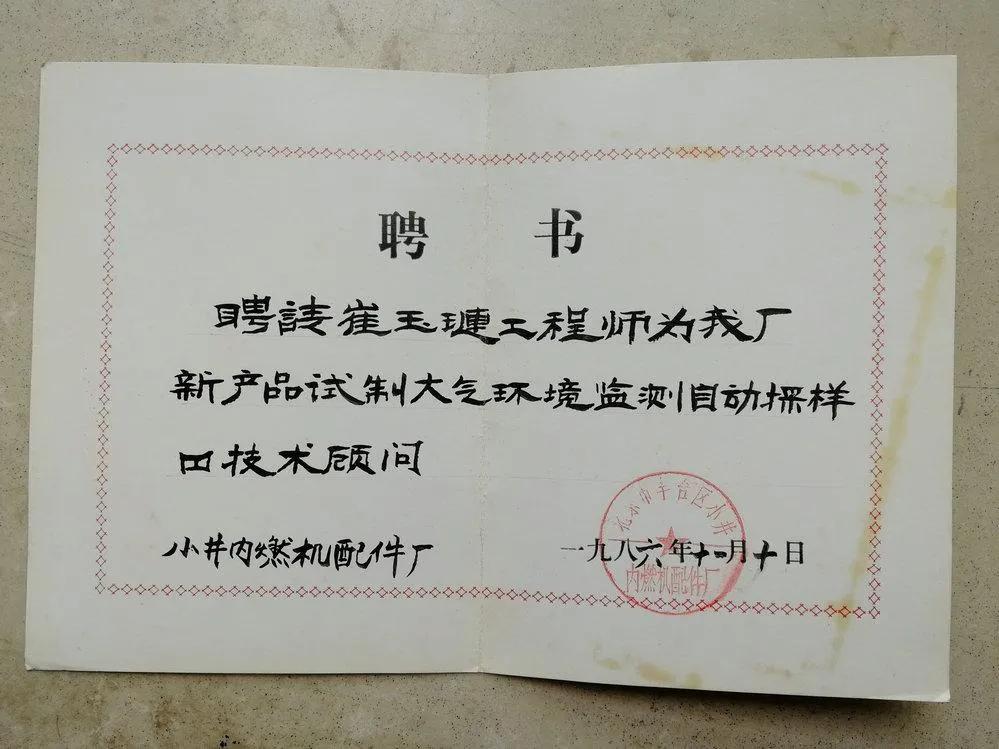 聘书
聘請崔玉璉工程师为我厂
新产品试制大气环境监测自动採样
口技术顾问
小井内燃机配件厂
一九八六年十一月十日
北京市丰台区小井
内燃机配件厂